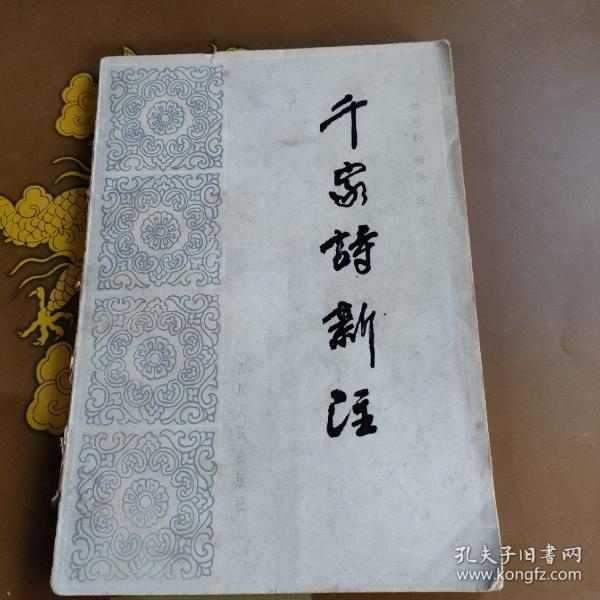 千家詩新註
注
四川人民出版社
孔夫子旧书网
www.kongfz.com